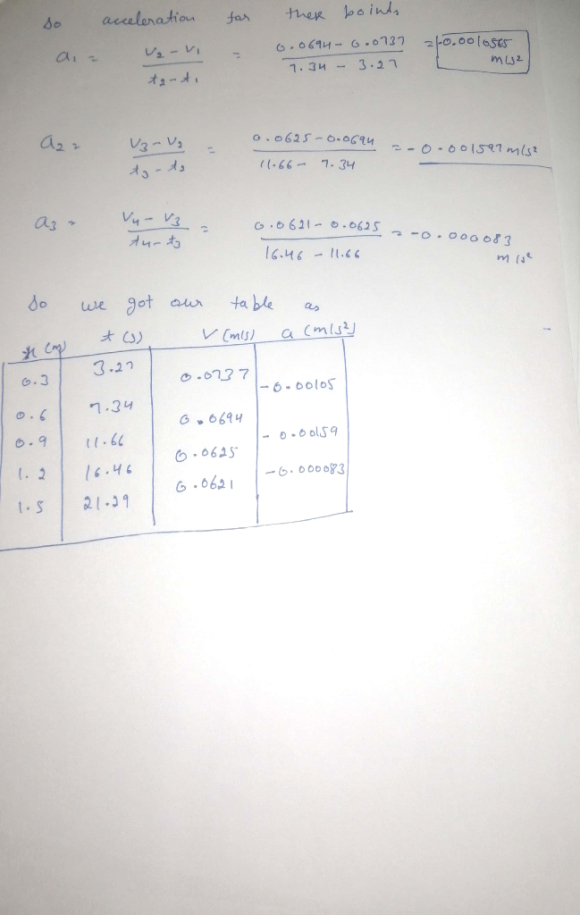 So acceleration for these points
a₁ = (v₂ - v₁)/(t₂ - t₁) = (0.0694 - 0.0737)/(7.34 - 3.27) = -0.0010565 m/s²
a₂ = (v₃ - v₂)/(t₃ - t₂) = (0.0625 - 0.0694)/(11.66 - 7.34) = -0.001597 m/s²
a₃ = (v₄ - v₃)/(t₄ - t₃) = (0.0621 - 0.0625)/(16.46 - 11.66) = -0.000083 m/s²
So we got our table as
x (m) t (s) V (m/s) a (m/s²)
0.3 3.27
0.0737
-0.00105
0.6 7.34
0.0694
-0.00159
0.9 11.66
0.0625
-0.000083
1.2 16.46
0.0621
1.5 21.29